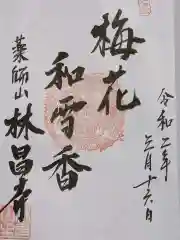 令和二年三月十六日
梅花
和雪香
薬師山林昌寺